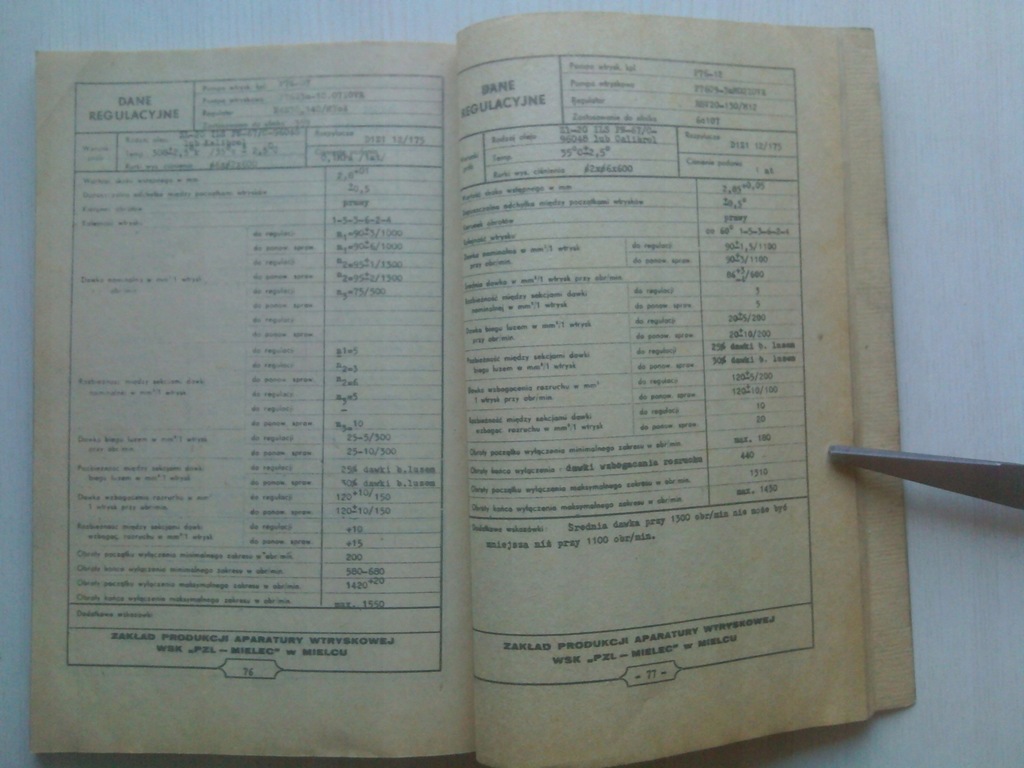 DANE
REGULACYJNE
Pompa wtrysk. kpl.
Pompa wtryskowa
Regulator
Warunki prób
Rodzaj oleju
lub Kalibrol
Temp.
Rurki wys. ciśnienia ø6xø2x600
Rozpylacze D1S1 12/175
Wartość skoku wstępnego w mm 2,0
Dopuszczalna odchyłka między początkami wtrysków ±0,5
Kierunek obrotów prawy
Kolejność wtrysku 1-5-3-6-2-4
Dawka nominalna w mm³/1 wtrysk
przy obr/min.
do regulacji n₁=90±3/1000
do ponow. spraw. n₁=90±6/1000
do regulacji n₂=95±1/1300
do ponow. spraw. n₂=95±2/1300
do regulacji n₃=75/500
do ponow. spraw.
do regulacji
do ponow. spraw.
Rozbieżność między sekcjami dawki
nominalnej w mm³/1 wtrysk
do regulacji n1=5
do regulacji n₂=3
do ponow. spraw. n₂=6
do regulacji n₃=5
do regulacji –
do ponow. spraw. 10
Dawka biegu luzem w mm³/1 wtrysk
przy obr/min.
do regulacji 25-5/300
do ponow. spraw. 25-10/300
Rozbieżność między sekcjami dawki
biegu luzem w mm³/1 wtrysk
do regulacji 25% dawki b.luzem
do ponow. spraw. 30% dawki b.luzem
Dawka wzbogacenia rozruchu w mm³
1 wtrysk przy obr/min.
do regulacji 120+10/150
do ponow. spraw. 120±10/150
Rozbieżność między sekcjami dawki
wzbogac. rozruchu w mm³/1 wtrysk
do regulacji +10
do ponow. spraw. +15
Obroty początku wyłączenia minimalnego zakresu w obr/min. 200
Obroty końca wyłączenia minimalnego zakresu w obr/min. 580-680
Obroty początku wyłączenia maksymalnego zakresu w obr/min. 1420+20
Obroty końca wyłączenia maksymalnego zakresu w obr/min. max. 1550
Dodatkowe wskazówki:
ZAKŁAD PRODUKCJI APARATURY WTRYSKOWEJ
WSK „PZL – MIELEC" w MIELCU
76
DANE
REGULACYJNE
Pompa wtrysk. kpl.
Pompa wtryskowa
Regulator
Zastosowanie do silnika 6s107
Warunki prób
Rodzaj oleju
96048 lub Kalibrol
Temp. 35°C±2,5°
Rurki wys. ciśnienia ø2xø6x600
Rozpylacze
D1S1 12/175
Ciśnienie podawy
Wartość skoku wstępnego w mm 2,05+0,05
Dopuszczalna odchyłka między początkami wtrysków ±0,5°
Kierunek obrotów prawy
Kolejność wtrysku co 60° 1-5-3-6-2-4
Dawka nominalna w mm³/1 wtrysk
przy obr/min.
do regulacji 90±1,5/1100
do ponow. spraw. 90±3/1100
Średnia dawka w mm³/1 wtrysk przy obr/min.
Rozbieżność między sekcjami dawki
nominalnej w mm³/1 wtrysk
do regulacji 3
do ponow. spraw. 5
Dawka biegu luzem w mm³/1 wtrysk
przy obr/min.
do regulacji 20±5/200
do ponow. spraw. 20±10/200
Rozbieżność między sekcjami dawki
biegu luzem w mm³/1 wtrysk
do regulacji 25% dawki b. luzem
do ponow. spraw. 30% dawki b. luzem
Dawka wzbogacenia rozruchu w mm³
1 wtrysk przy obr/min.
do regulacji 120±5/200
do ponow. spraw. 120±10/100
Rozbieżność między sekcjami dawki
wzbogac. rozruchu w mm³/1 wtrysk
do regulacji 10
do ponow. spraw. 20
Obroty początku wyłączenia minimalnego zakresu w obr/min. max. 180
Obroty końca wyłączenia - dawki wzbogacania rozruchu 440
Obroty początku wyłączenia maksymalnego zakresu w obr/min. 1310
Obroty końca wyłączenia maksymalnego zakresu w obr/min. max. 1430
Dodatkowe wskazówki: Średnia dawka przy 1300 obr/min nie może być
mniejsza niż przy 1100 obr/min.
ZAKŁAD PRODUKCJI APARATURY WTRYSKOWEJ
WSK „PZL – MIELEC" w MIELCU
– 77 –